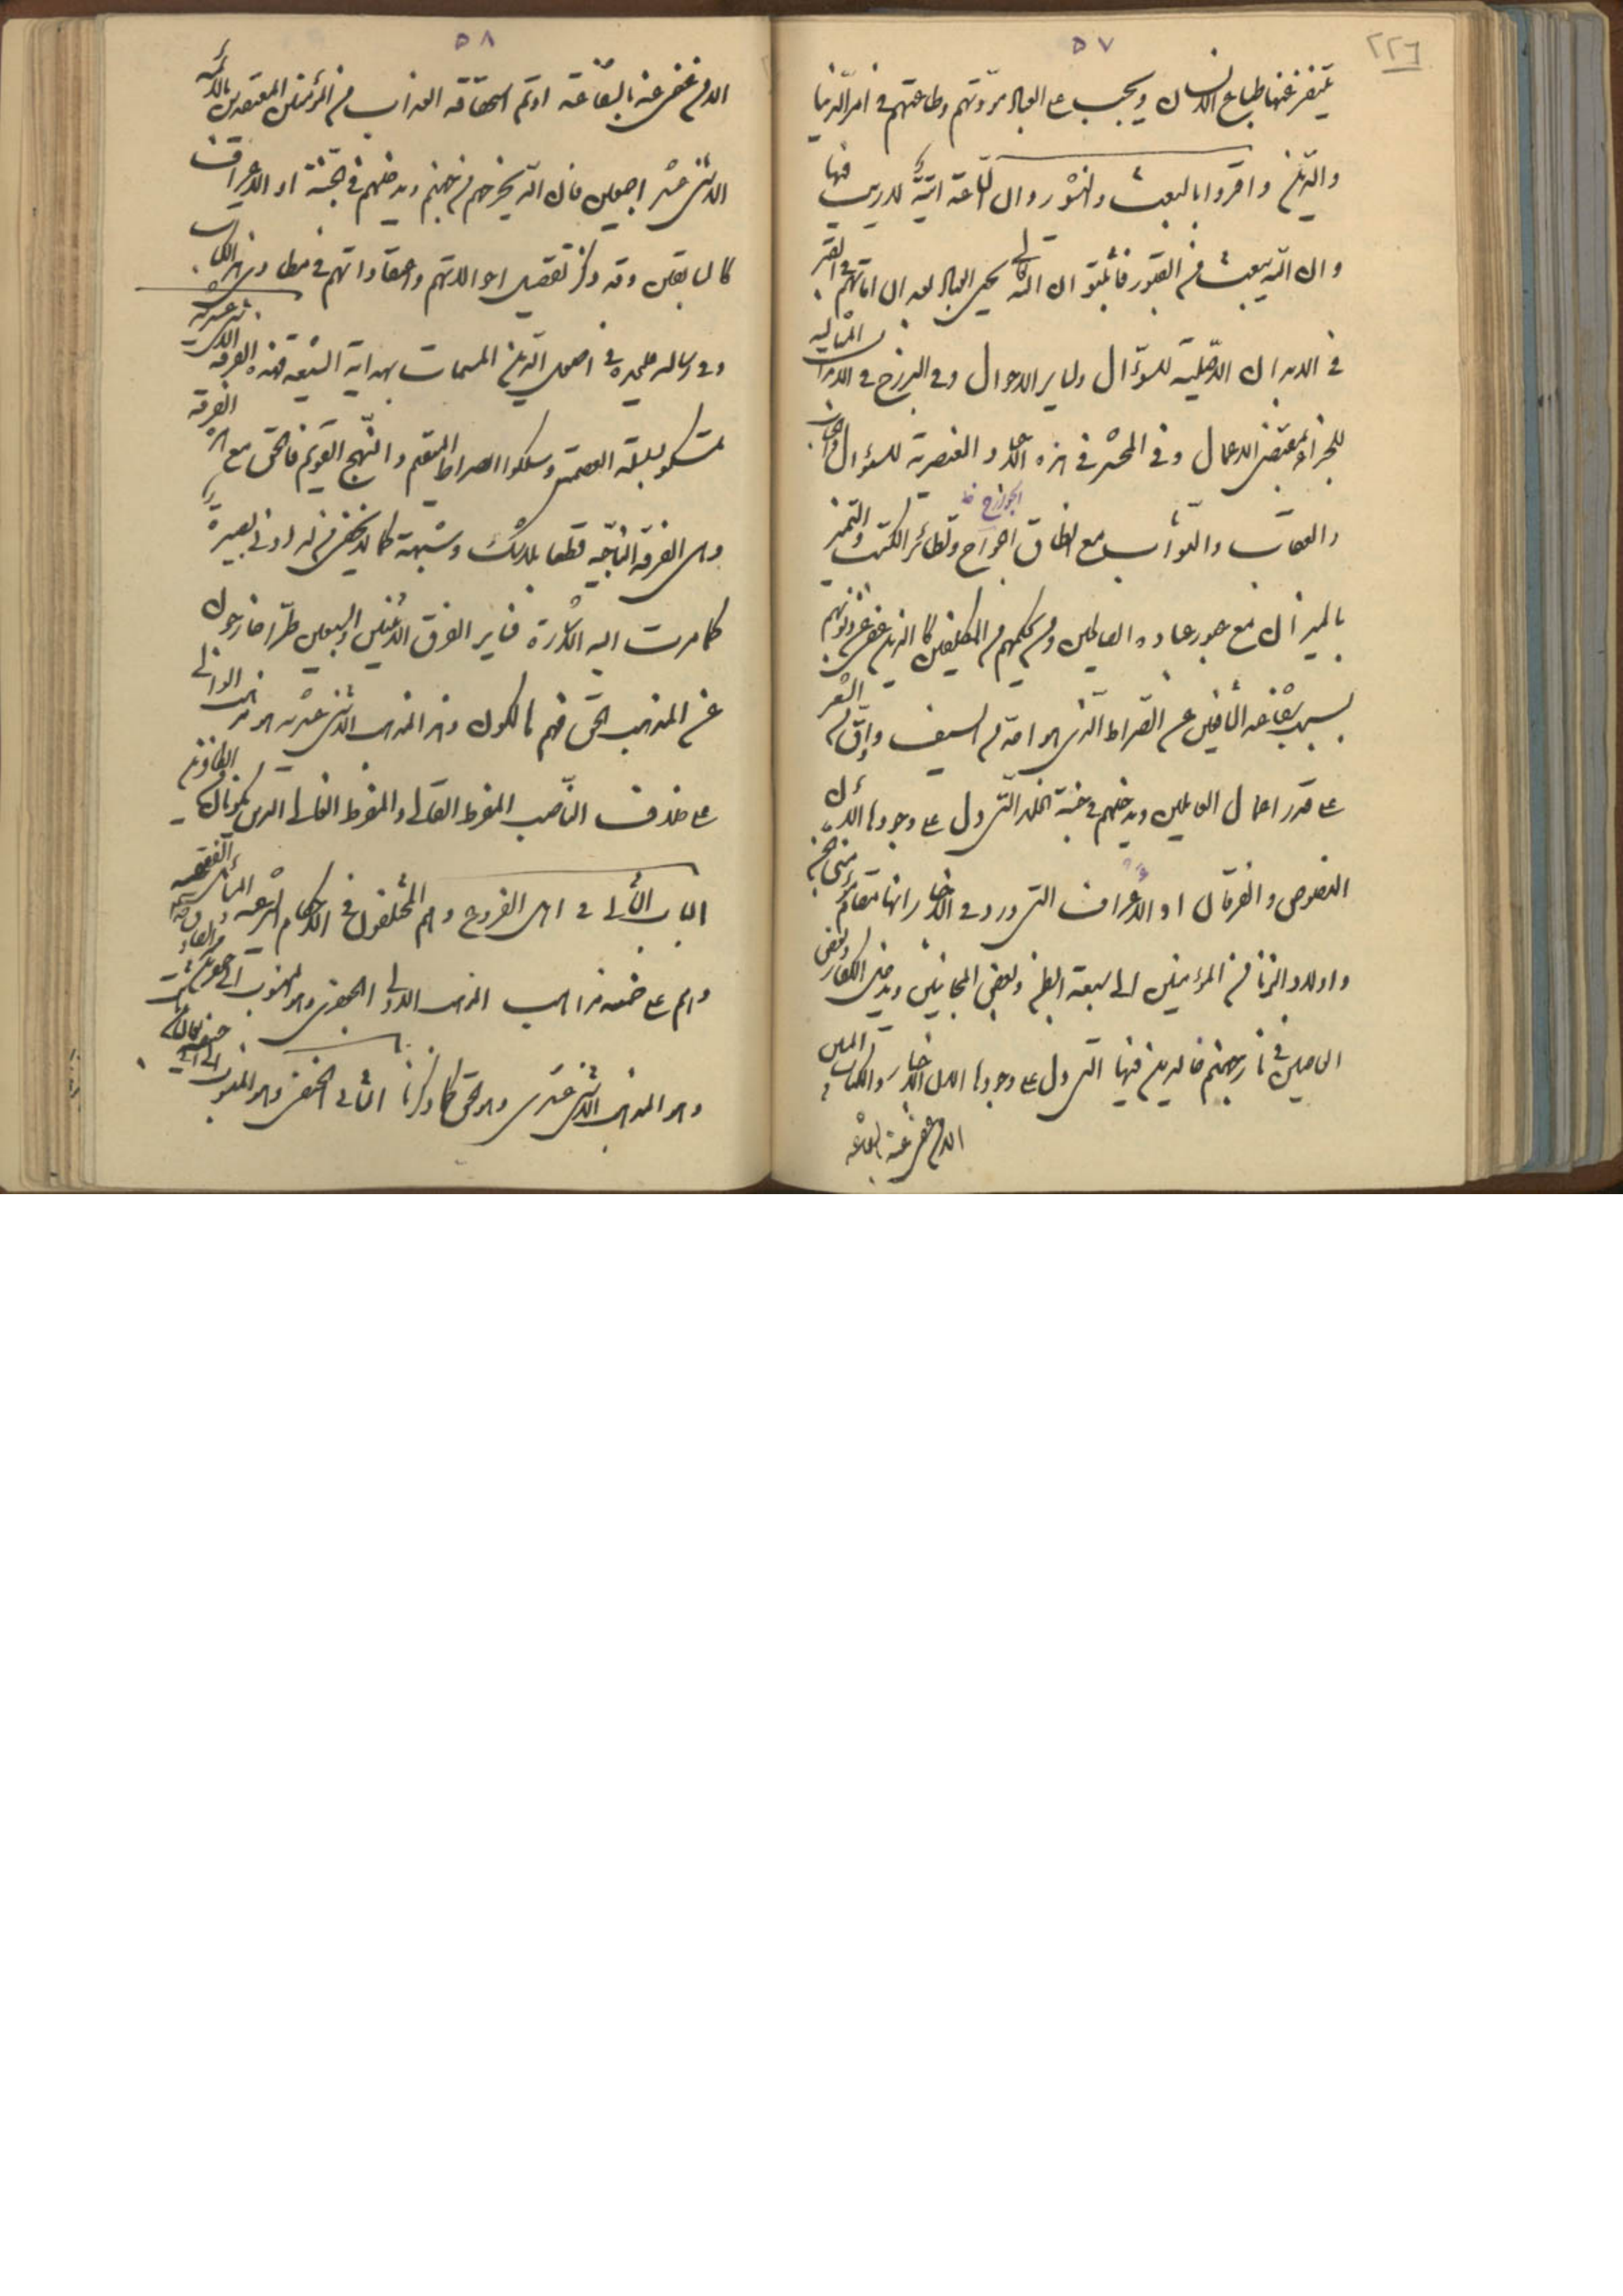 ٢٢٦
٥٧
عنها طباع الانسان ويجب على العباد مودتهم وطاعتهم في امر الدنيا
والدين واقروا بالبعث والنشور وان الساعة اتية لا ريب فيها
وان الله يبعث من في القبور فاثبتوا ان الله تعالى يحيى العباد بعد ان اماتهم في القبر
في الابدان الاصلية للسؤال وساير الاحوال وفي البرزخ في الابدان المثالية
للجزاء بمقتضى الاعمال وفي المحشر في هذه الاجساد العنصرية للسؤال والحساب
والعقاب والثواب مع انطاق الجوارح وتطائر الكتب والتميز
الجوارح ظ
بالميزان مع عبور عباده الصالحين ومن بحكمهم من المكلفين كالذين غفر عن ذنوبهم
بسبب شفاعة الشافعين عن الصراط الذي هو احد من السيف وادق من الشعر
على قدر اعمال العاملين ويدخلهم في جنة الخلد التي دل على وجودها الان
النصوص والفرقان او الاعراف التي ورد في الاخبار انها مقام مؤمنى الجن
واولاد الزنا من المؤمنين الى سبعة ابطن وبعض المجانين ويدخل الكفار وبعض
العاصين في نار جهنم خالدين فيها التي دل على وجودها الان الاخبار والكتاب المبين
الا من غفر عنه بشفاعة
٥٨
الا من غفر عنه بالشفاعة او تم استحقاقه العذاب من المؤمنين المعتقدين بالائمة
الاثنى عشر اجمعين فان الله يخرجهم من جهنم ويدخلهم في الجنة او الاعراف
كالسابقين وقد ذكر تفصيل احوالاتهم واعتقاداتهم في مطاوى هذا الكتاب
وفي رسالة عليحدة في اصول الدين المسمات بهداية الشيعة فهذه الفرقة الاثنى عشرية
تمسكوا بسلسلة العصمة وسلكوا الصراط المستقيم والنهج القويم فالحق مع هذه الفرقة
وهى الفرقة الناجية قطعا بلا شك وشبهة كما لا يخفى من له ادنى بصيرة
كما مرت اليه الاشارة فساير الفرق الاثنين والسبعين طرا خارجون
عن المذهب الحق فهم هالكون وهذا المذهب الاثنى عشرية هو مذهب الوافى
على خلاف الناصب المفرط القالى والمفرط الغالى الذين
الباب الثانى في اهل الفروع وهم المختلفون في الاحكام الشرعية والمسائل الفقهية
وهم على خمسة مذاهب المذهب الاول الجعفرى وهو المنسوب الى جعفر بن
وهو المذهب الاثنى عشرى وهو حق كما ذكرنا الثانى الحنفى وهو المنسوب الى ابى حنيفة